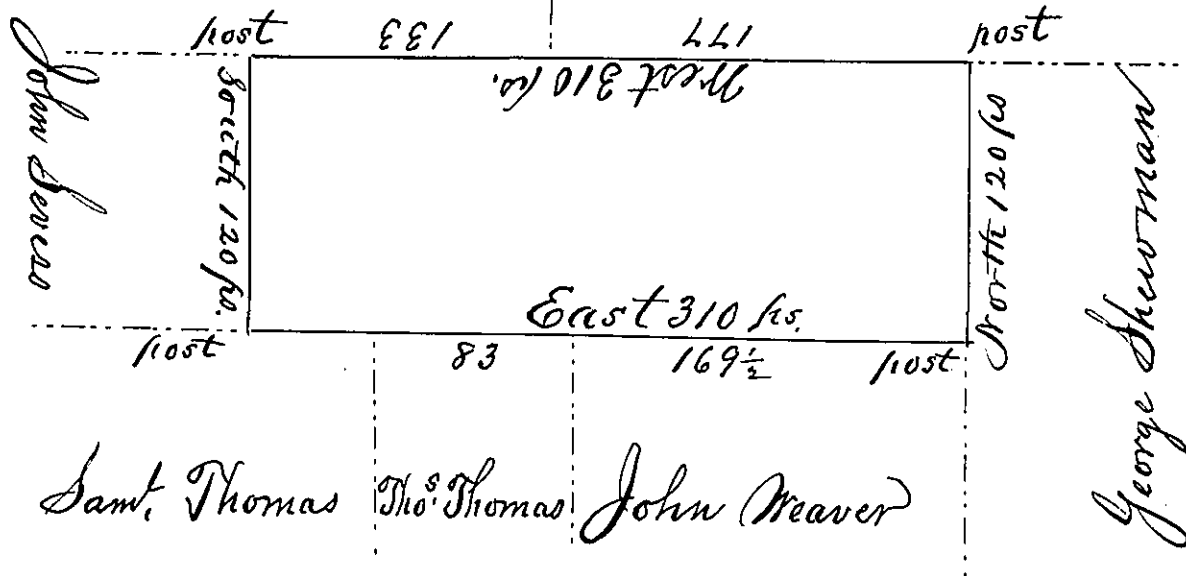 post 133 177 post
West 310 ps.
John
South 120 ps.
North 120 ps
George Shewman
East 310 ps.
post 83 169½ post
Saml. Thomas
Thos. Thomas
John Weaver